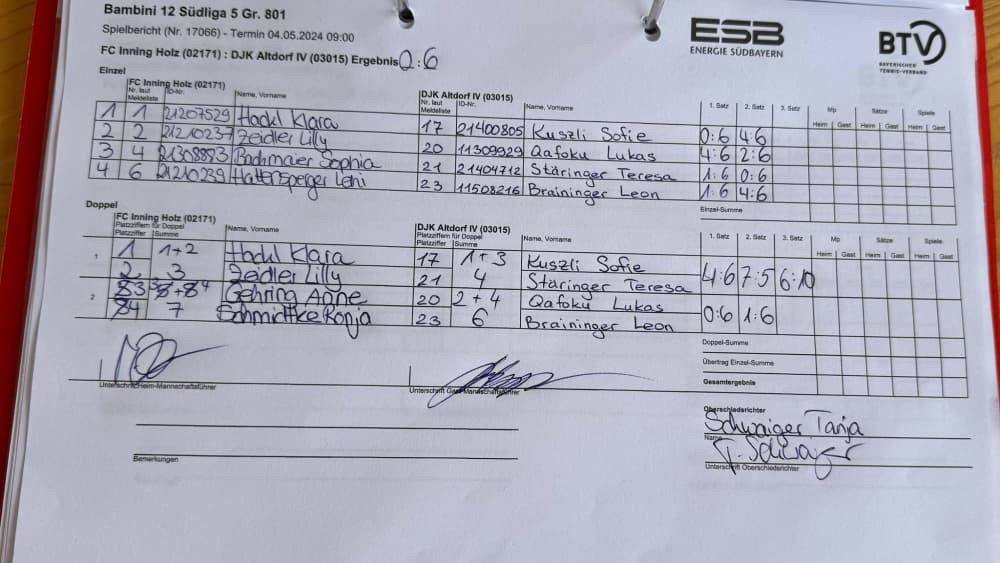 Bambini 12 Südliga 5 Gr. 801
Spielbericht (Nr. 17066) - Termin 04.05.2024 09:00
FC Inning Holz (02171) : DJK Altdorf IV (03015) Ergebnis 0:6
ESB
ENERGIE SÜDBAYERN
BTV
BAYERISCHER
TENNIS-VERBAND
Einzel
FC Inning Holz (02171) DJK Altdorf IV (03015)
Nr. laut Meldeliste ID-Nr. Name, Vorname Nr. laut Meldeliste ID-Nr. Name, Vorname 1. Satz 2. Satz 3. Satz Mp Sätze Spiele
Heim Gast Heim Gast Heim Gast
1 1 21207529 Hadl Klara 17 21400805 Kuszli Sofie 0:6 4:6
2 2 21210237 Zeidler Lilly 20 11309929 Qafoku Lukas 4:6 2:6
3 4 21308893 Bachmaier Sophia 21 21404712 Stäringer Teresa 1:6 0:6
4 6 21210239 Hattersperger Leni 23 11508216 Braininger Leon 1:6 4:6
Einzel-Summe
Doppel
FC Inning Holz (02171) DJK Altdorf IV (03015)
Platzziffern für Doppel Platzziffern für Doppel
Platzziffer Summe Name, Vorname Platzziffer Summe Name, Vorname 1. Satz 2. Satz 3. Satz Mp Sätze Spiele
Heim Gast Heim Gast Heim Gast
1 1 1+2 Hadl Klara 17 1+3 Kuszli Sofie
2 3 Zeidler Lilly 21 4 Stäringer Teresa 4:6 7:5 6:10
2 3 Gehring Anne 20 2+4 Qafoku Lukas
4 7 Schmidtke Ronja 23 6 Braininger Leon 0:6 1:6
Doppel-Summe
Übertrag Einzel-Summe
Gesamtergebnis
Unterschrift Heim-Mannschaftsführer
Unterschrift Gast-Mannschaftsführer
Oberschiedsrichter
Schwaiger Tanja
Name
T. Schwaiger
Unterschrift Oberschiedsrichter
Bemerkungen